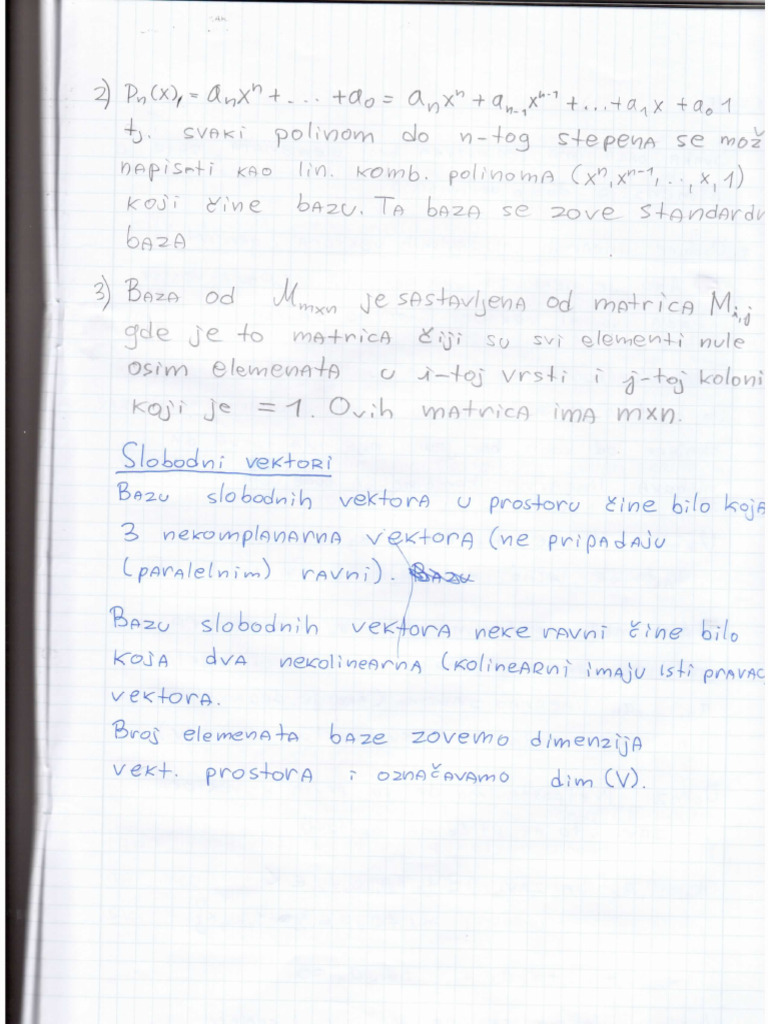 2) Pₙ(x) = aₙxⁿ + ... + a₀ = aₙxⁿ + aₙ₋₁xⁿ⁻¹ + ... + a₁x + a₀1
tj. svaki polinom do n-tog stepena se mož
napisati kao lin. komb. polinoma (xⁿ, xⁿ⁻¹, .., x, 1)
koji čine bazu. Ta baza se zove standardn
baza
3) Baza od Mₘₓₙ je sastavljena od matrica Mᵢ,ⱼ
gde je to matrica čiji su svi elementi nule
osim elemenata u i-toj vrsti i j-toj koloni
koji je = 1. Ovih matrica ima mxn.
Slobodni vektori
Bazu slobodnih vektora u prostoru čine bilo koja
3 nekomplanarna vektora (ne pripadaju
(paralelnim) ravni). Bazu
Bazu slobodnih vektora neke ravni čine bilo
koja dva nekolinearna (kolinearni imaju isti pravac,
vektora.
Broj elemenata baze zovemo dimenzija
vekt. prostora i označavamo dim (V).